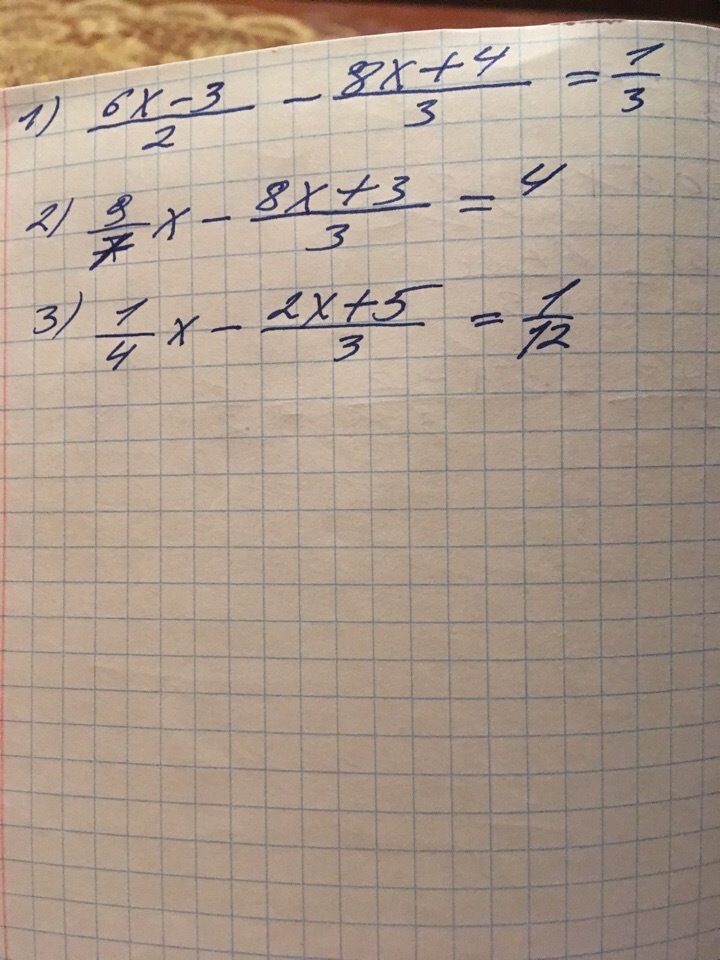 1) (6x-3)/2 - (8x+4)/3 = 1/3
2) 9/7 x - (8x+3)/3 = 4
3) 1/4 x - (2x+5)/3 = 1/12